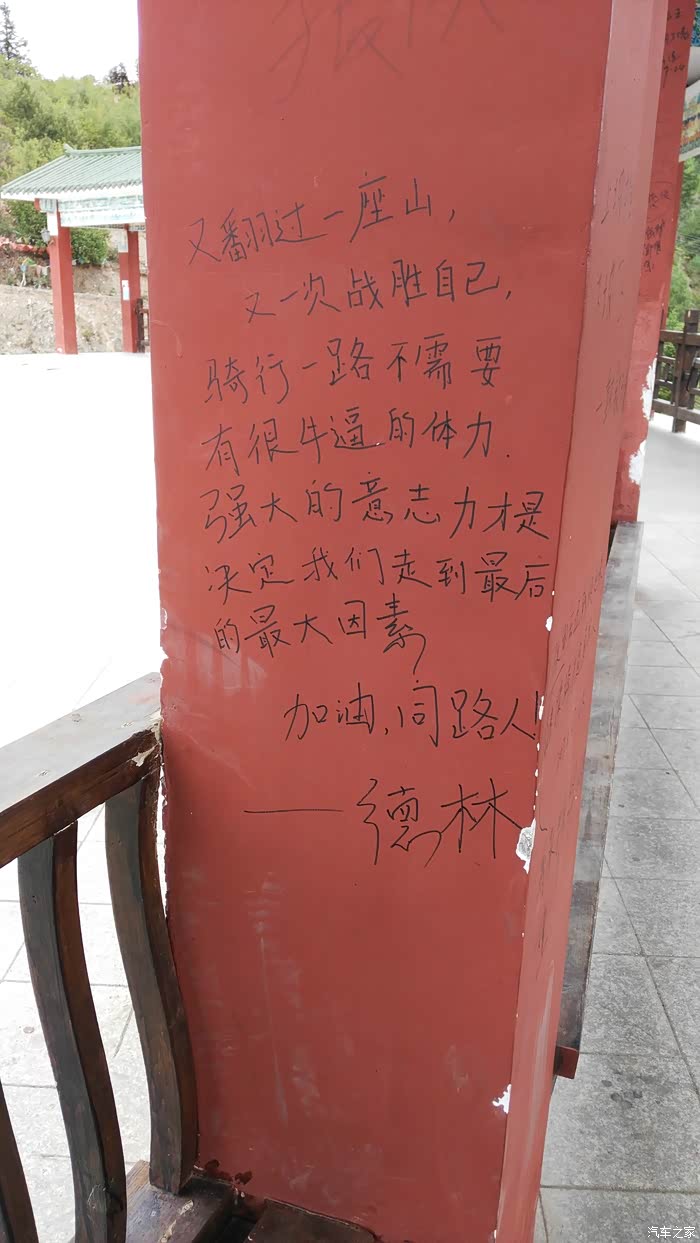 又翻过一座山,
又一次战胜自己,
骑行一路不需要
有很牛逼的体力.
强大的意志力才是
决定我们走到最后
的最大因素
加油,同路人!
——德林
汽车之家